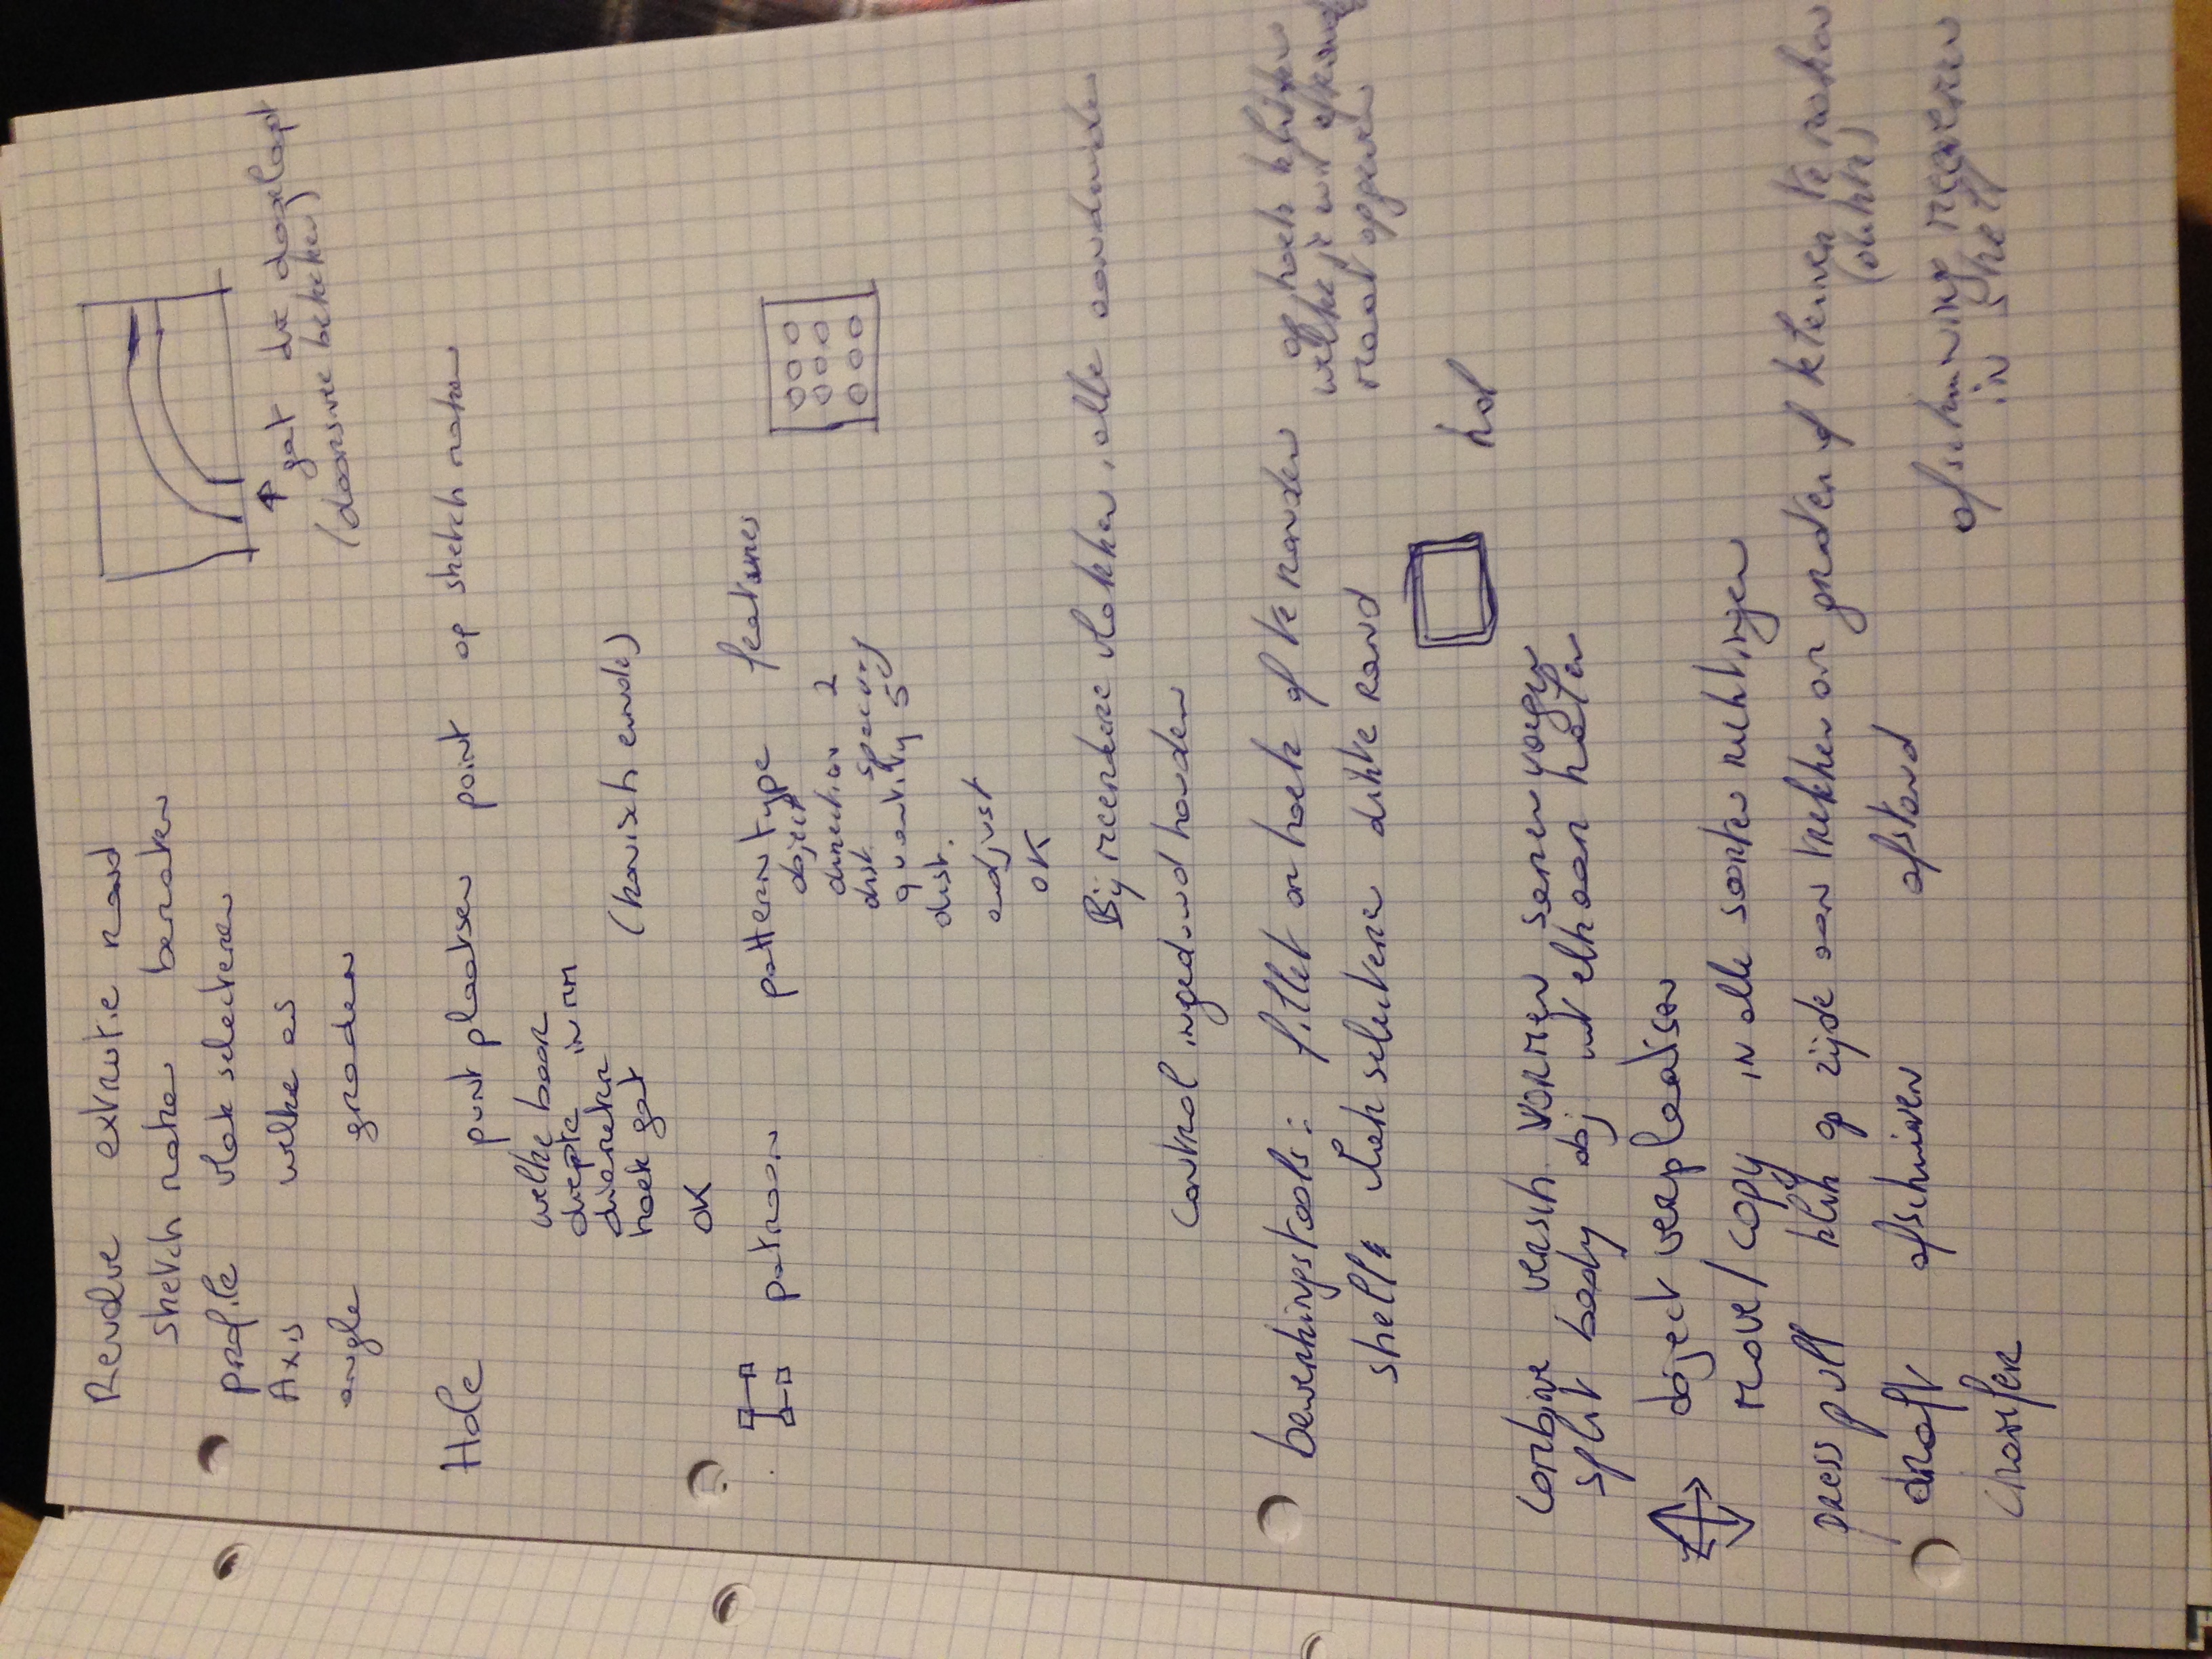 Revolve extrutie rond
sketch maken bematen
profile vlak selecteren
Axis welke as
angle graden
gat die doorloopt
(doorsnee bekeken)
Hole punt plaatsen point op sketch maken
welke boor
diepte in mm
diameter
hoek gat (konisch einde)
OK
patroon pattern type features
object
direction 2
dist. spacing
quantity 5
dist.
adjust
OK
Bij meerdere vlakken, alle aanduiden
Control ingeduwd houden
bewerkingstools: fillet om hoek af te ronden op hoek klikken
welke je wil afronden
maat opgeven
shell: vlak selecteren dikte rand
hol
Combine versch. vormen samenvoegen
split body obj uit elkaar halen
object verplaatsen
move/copy in alle soorten richtingen
press pull klik op zijde aan trekken om groter of kleiner te maken
(dikte)
draft afschuinen afstand
afschuining
in shell
Chamfer